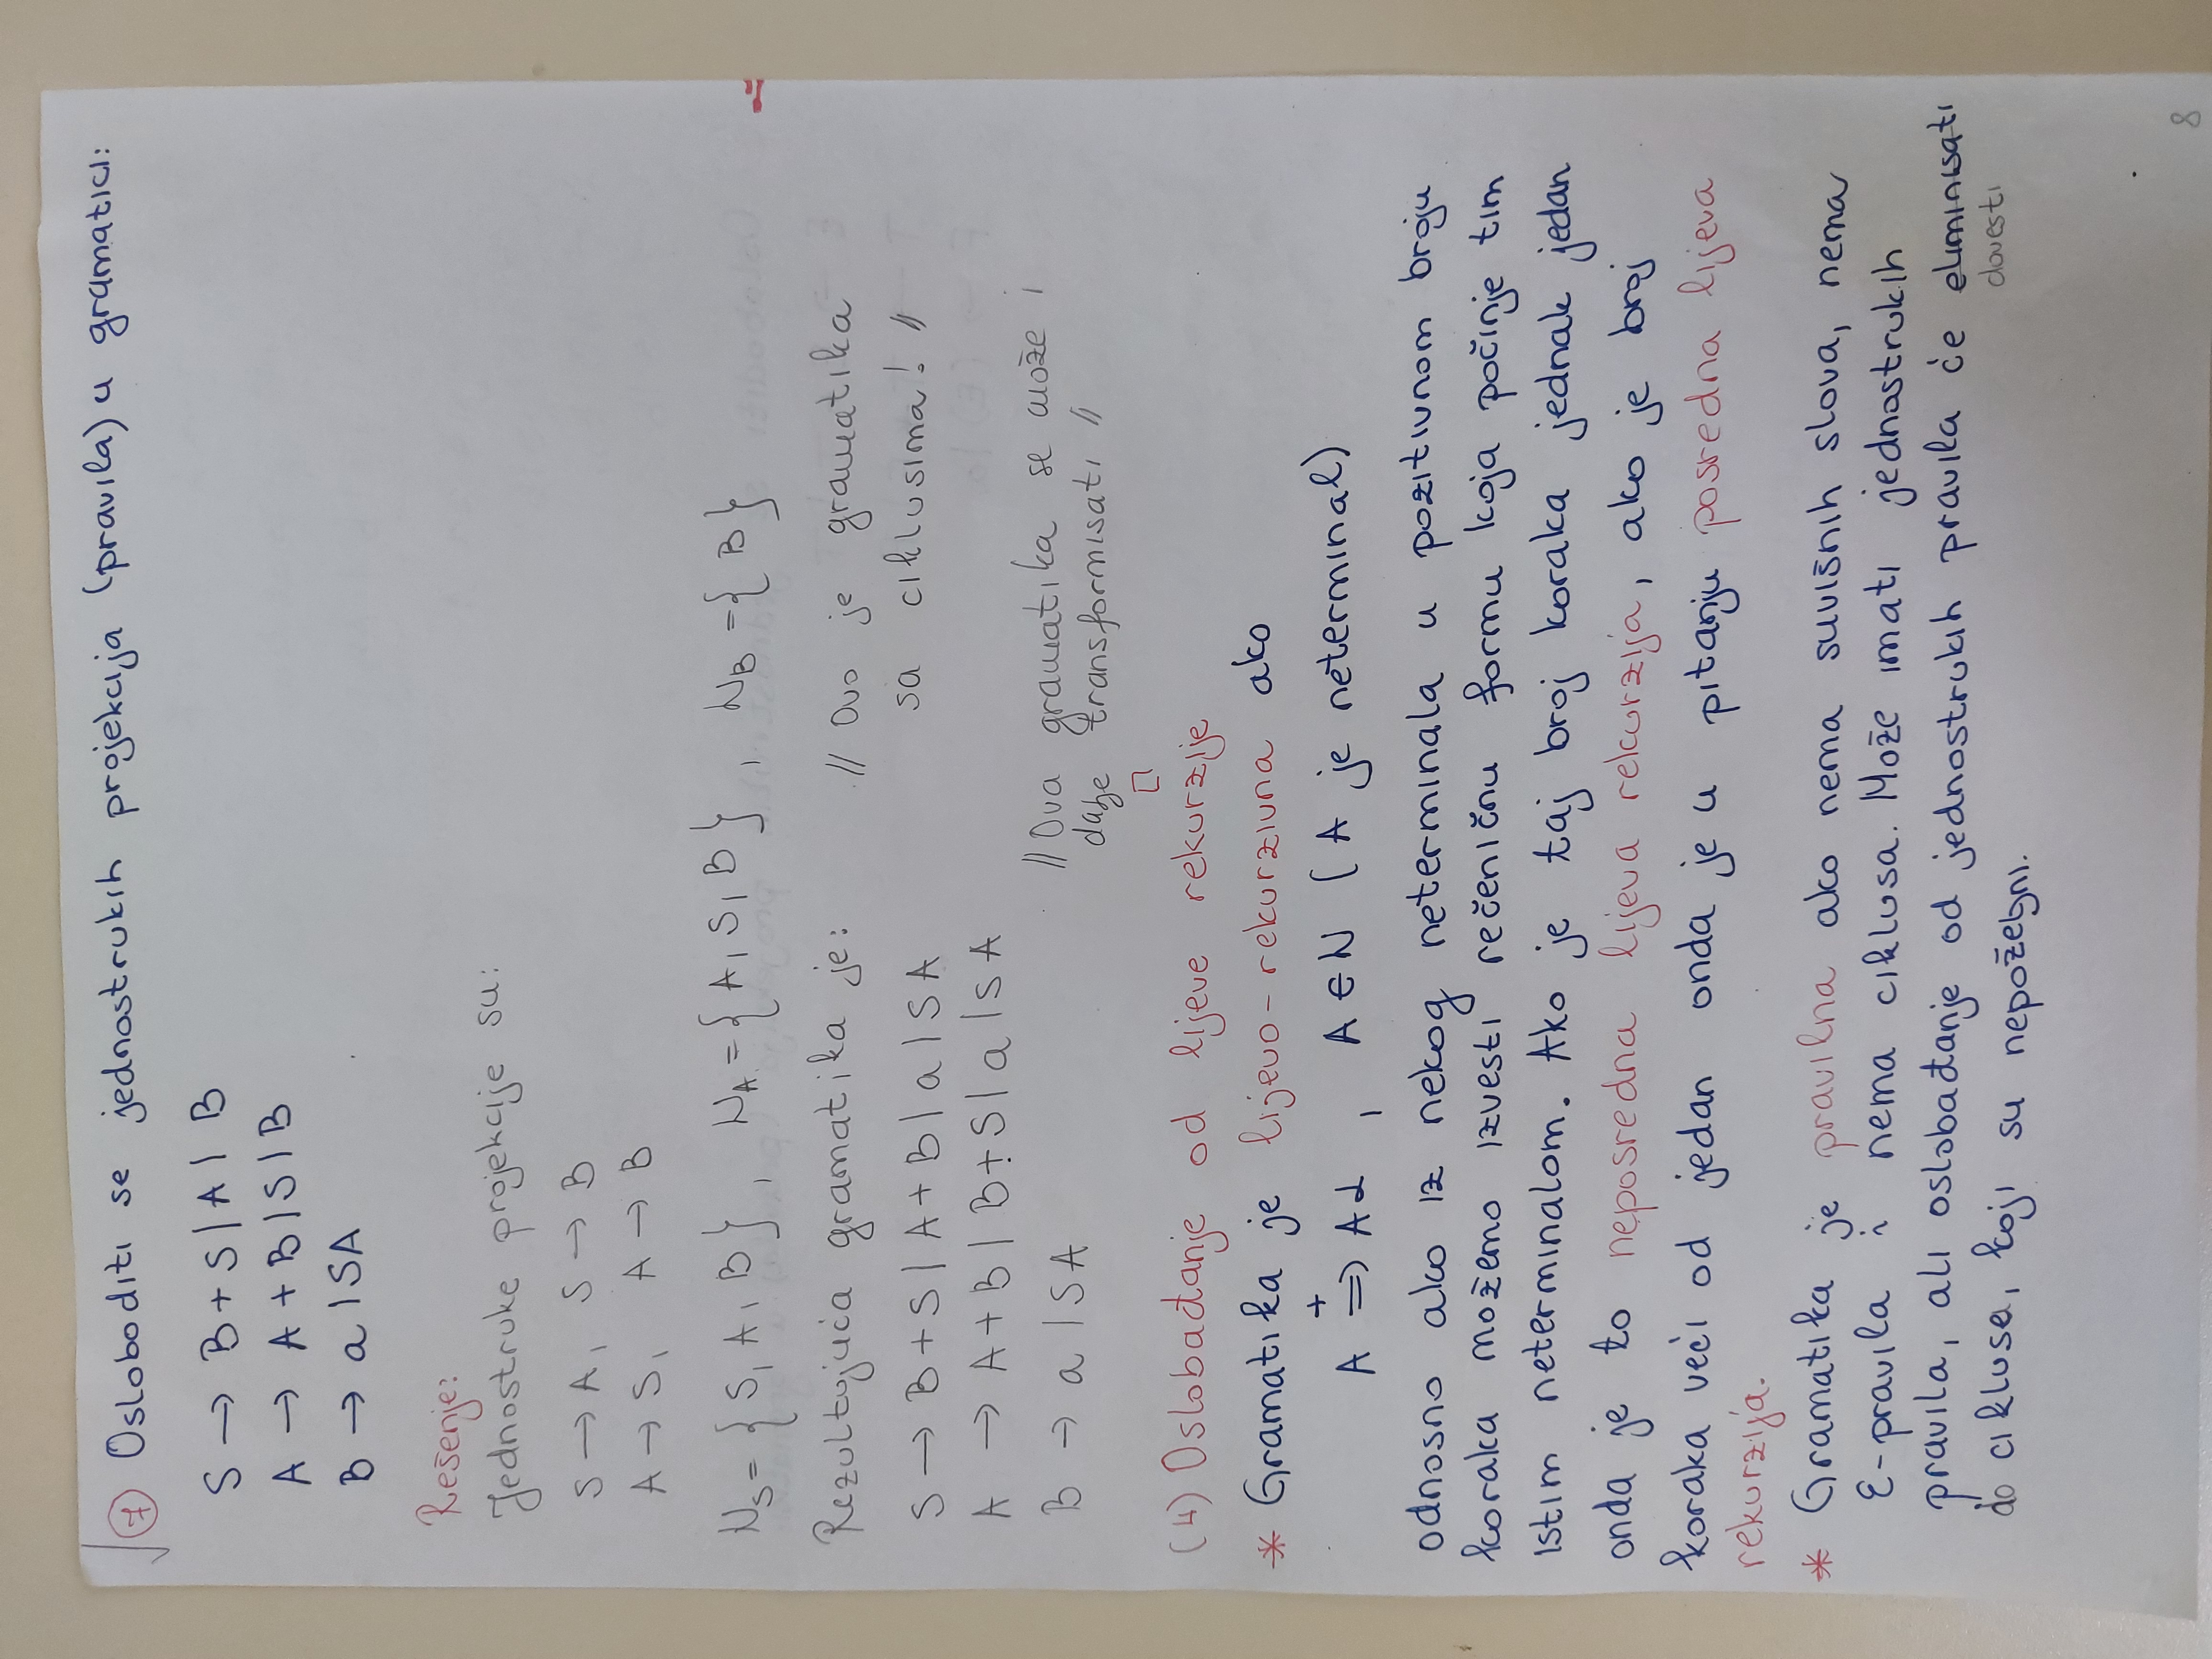 7 Osloboditi se jednostrukih projekcija (pravila) u gramatici:
S → B+S | A | B
A → A + B | S | B
B → a | SA
Rešenje:
Jednostruke projekcije su:
S → A, S → B
A → S, A → B
N_S = { S, A, B }, N_A = { A, S, B }, N_B = { B }
Rezultujuća gramatika je: // Ovo je gramatika
sa ciklusima! //
S → B+S | A+B | a | SA
A → A+B | B+S | a | SA
B → a | SA
// Ova gramatika se može i
dalje transformisati //
(4) Oslobađanje od lijeve rekurzije
* Gramatika je lijevo-rekurzivna ako
A ⇒⁺ Aα , A ∈ N (A je neterminal)
odnosno ako iz nekog neterminala u pozitivnom broju
koraka možemo izvesti rečeničnu formu koja počinje tim
istim neterminalom. Ako je taj broj koraka jednak jedan
onda je to neposredna lijeva rekurzija, ako je broj
koraka veći od jedan onda je u pitanju posredna lijeva
rekurzija.
* Gramatika je pravilna ako nema suvišnih slova, nema
ε-pravila i nema ciklusa. Može imati jednostrukih
pravila, ali oslobađanje od jednostrukih pravila će eliminisati
dovesti
do ciklusa, koji su nepoželjni.
8